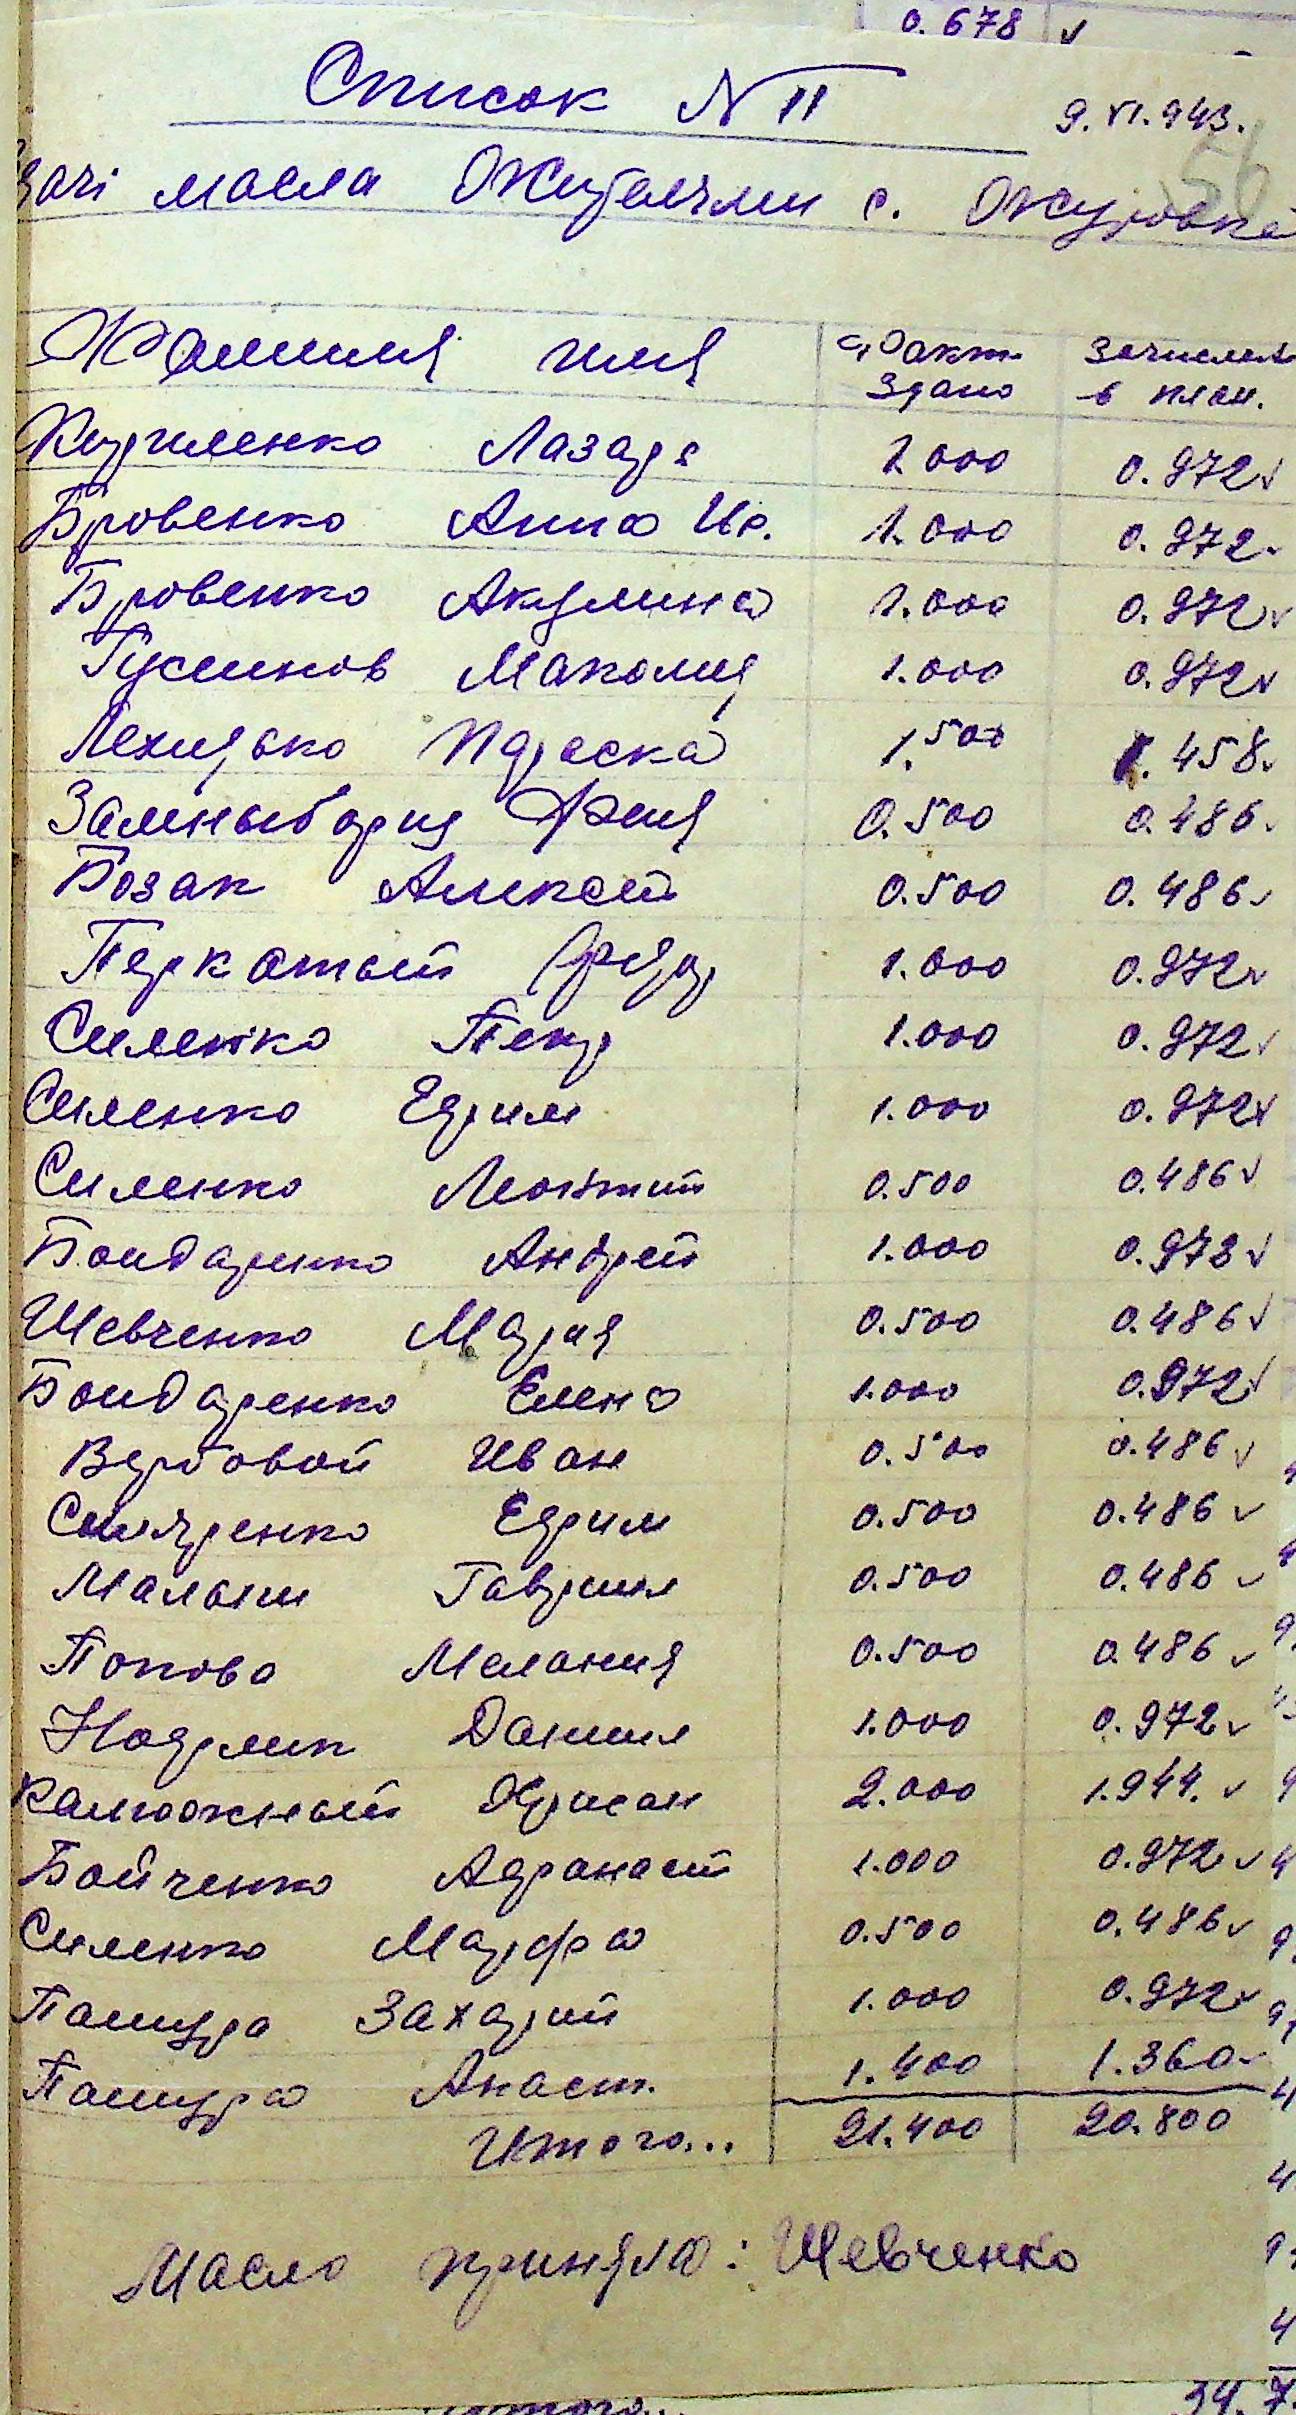 0.678 ✓
Список № 11 9.VI.943.
дачі масла Жителями с. Журовка
Фамилия имя Факт. здано Зачислен в план.
Кириленко Лазарь 1.000 0.972 ✓
Бровенко Анна Ив. 1.000 0.972 ✓
Бровенко Акулина 1.000 0.972 ✓
Гусинов 1.000 0.972 ✓
Параска 1.500 1.458 ✓
0.500 0.486
Бозак Алексей 0.500 0.486 ✓
Перкатый Фёдор 1.000 0.972 ✓
Силенко Петр 1.000 0.972 ✓
Силенко Ефим 1.000 0.972 ✓
Силенко Леонтий 0.500 0.486 ✓
Бондаренко Андрей 1.000 0.973 ✓
Шевченко Мария 0.500 0.486 ✓
Бондаренко Елена 1.000 0.972 ✓
Вербовой Иван 0.500 0.486 ✓
Ефим 0.500 0.486 ✓
Малыш Гаврил 0.500 0.486 ✓
Попова Мелания 0.500 0.486 ✓
Данил 1.000 0.972 ✓
Калюжный Хрисан 2.000 1.944. ✓
Бойченко Афанасий 1.000 0.972 ✓
Силенко Марфа 0.500 0.486 ✓
Пашура Захарий 1.000 0.972 ✓
Пашура Анаст. 1.400 1.360 ✓
Итого... 21.400 20.800
Масло приняла: Шевченко
итого... 34.7